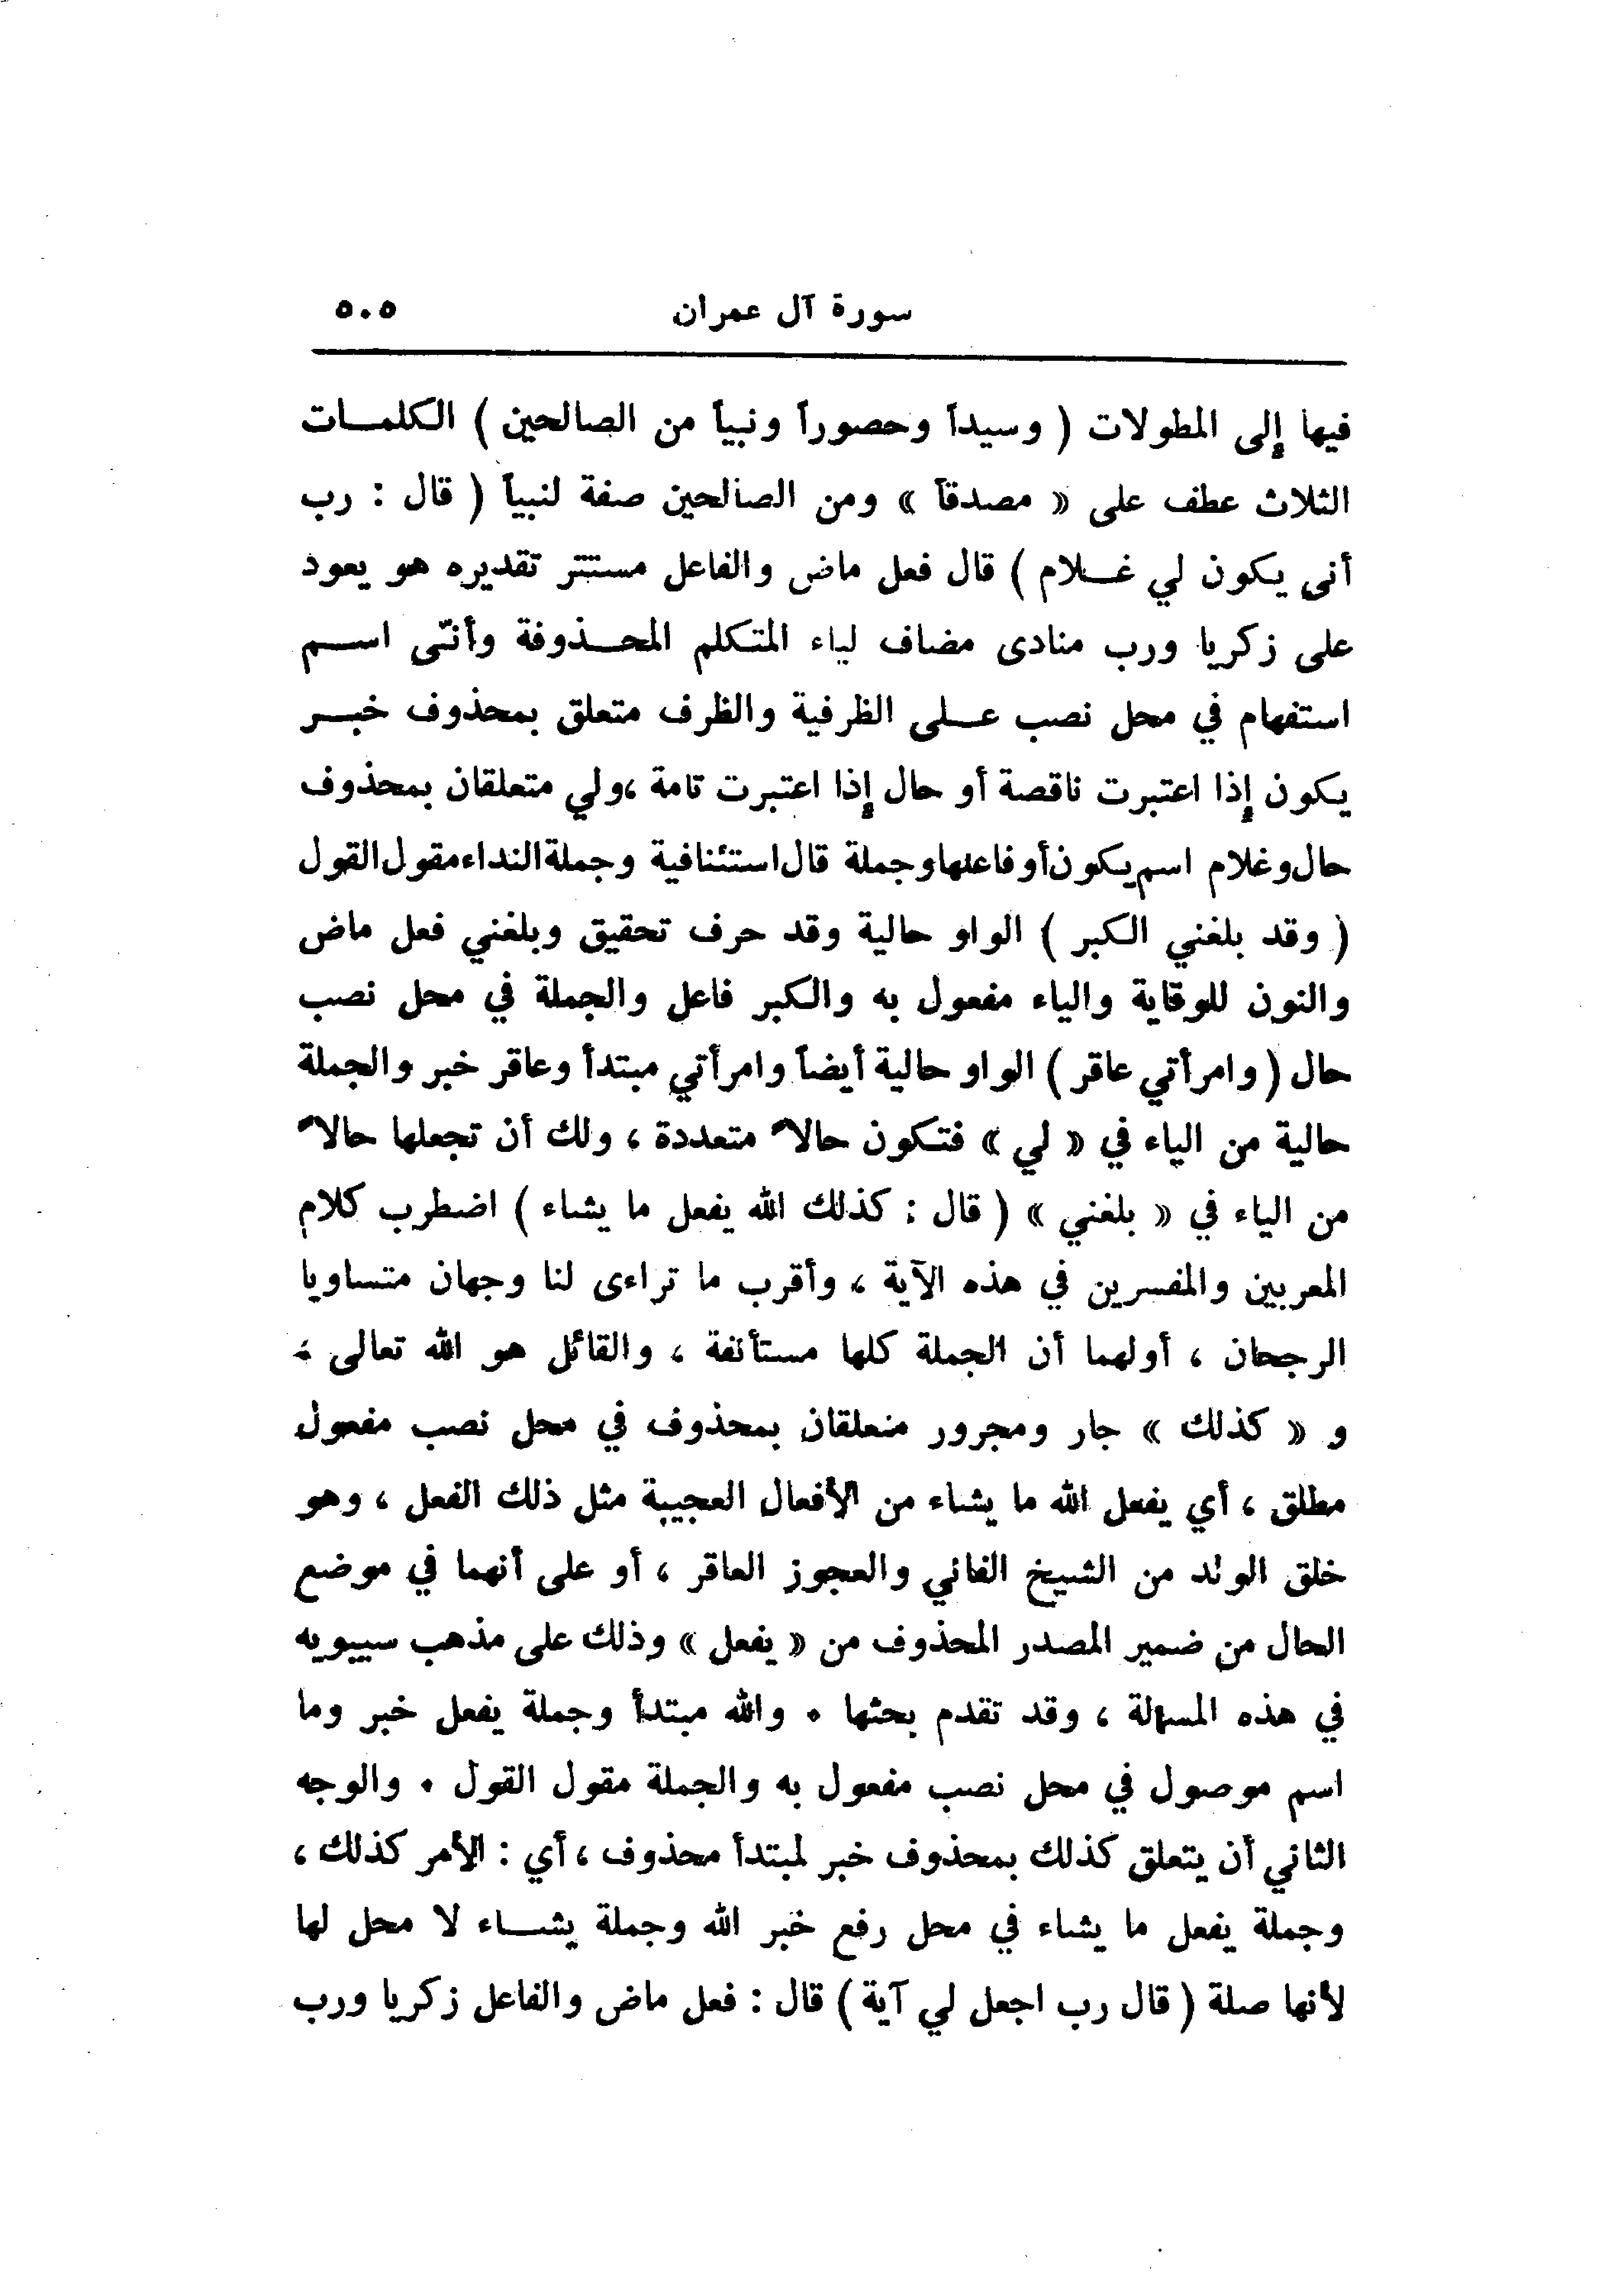 سورة آل عمران ٥٠٥
فيها إلى المطولات ( وسيداً وحصوراً ونبياً من الصالحين ) الكلمات
الثلاث عطف على « مصدقاً » ومن الصالحين صفة لنبياً ( قال : رب
أنى يكون لي غلام ) قال فعل ماض والفاعل مستتر تقديره هو يعود
على زكريا ورب منادى مضاف لياء المتكلم المحذوفة وأنّى اسم
استفهام في محل نصب على الظرفية والظرف متعلق بمحذوف خبر
يكون إذا اعتبرت ناقصة أو حال إذا اعتبرت تامة ، ولي متعلقان بمحذوف
حال وغلام اسم يكون أو فاعلها وجملة قال استئنافية وجملة النداء مقول القول
( وقد بلغني الكبر ) الواو حالية وقد حرف تحقيق وبلغني فعل ماض
والنون للوقاية والياء مفعول به والكبر فاعل والجملة في محل نصب
حال ( وامرأتي عاقر ) الواو حالية أيضاً وامرأتي مبتدأ وعاقر خبر والجملة
حالية من الياء في « لي » فتكون حالاً متعددة ، ولك أن تجعلها حالاً
من الياء في « بلغني » ( قال : كذلك الله يفعل ما يشاء ) اضطرب كلام
المعربين والمفسرين في هذه الآية ، وأقرب ما تراءى لنا وجهان متساويا
الرجحان ، أولهما أن الجملة كلها مستأنفة ، والقائل هو الله تعالى ،
و « كذلك » جار ومجرور متعلقان بمحذوف في محل نصب مفعول
مطلق ، أي يفعل الله ما يشاء من الأفعال العجيبة مثل ذلك الفعل ، وهو
خلق الولد من الشيخ الفاني والعجوز العاقر ، أو على أنهما في موضع
الحال من ضمير المصدر المحذوف من « يفعل » وذلك على مذهب سيبويه
في هذه المسألة ، وقد تقدم بحثها . والله مبتدأ وجملة يفعل خبر وما
اسم موصول في محل نصب مفعول به والجملة مقول القول . والوجه
الثاني أن يتعلق كذلك بمحذوف خبر لمبتدأ محذوف ، أي : الأمر كذلك ،
وجملة يفعل ما يشاء في محل رفع خبر الله وجملة يشاء لا محل لها
لأنها صلة ( قال رب اجعل لي آية ) قال : فعل ماض والفاعل زكريا ورب